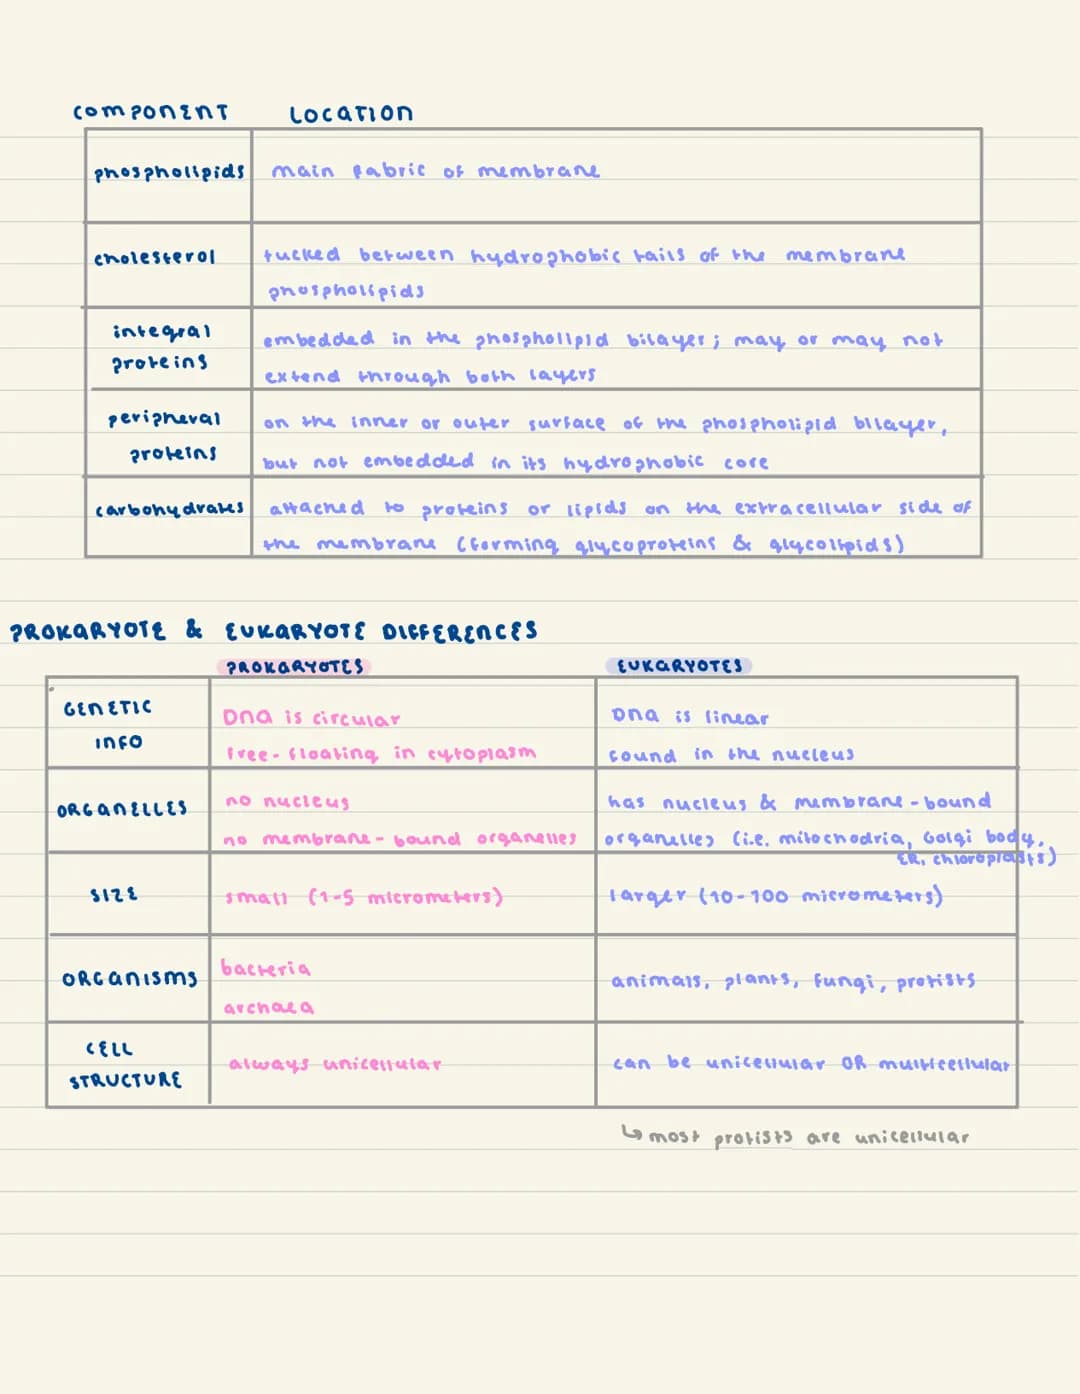 COMPONENT LOCATION
phospholipids main fabric of membrane
cholesterol tucked between hydrophobic tails of the membrane
phospholipids
integral
proteins
embedded in the phospholipid bilayer; may or may not
extend through both layers
peripheral
proteins
on the inner or outer surface of the phospholipid bilayer,
but not embedded in its hydrophobic core
carbohydrates attached to proteins or lipids on the extracellular side of
the membrane (forming glycoproteins & glycolipids)
PROKARYOTE & EUKARYOTE DIFFERENCES
PROKARYOTES EUKARYOTES
GENETIC
INFO
DNA is circular
free-floating in cytoplasm
DNA is linear
found in the nucleus
ORGANELLES
no nucleus
no membrane-bound organelles
has nucleus & membrane-bound
organelles (i.e. mitochodria, Golgi body,
ER, chloroplasts)
SIZE small (1-5 micrometers) larger (10-100 micrometers)
ORGANISMS
bacteria
archaea
animals, plants, fungi, protists
CELL
STRUCTURE
always unicellular
can be unicellular OR multicellular
↳ most protists are unicellular